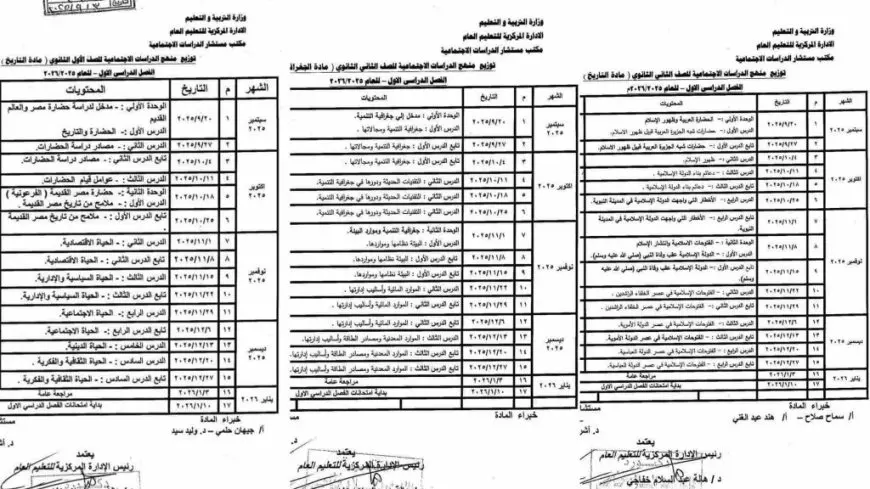 وزارة التربية و التعليم
الادارة المركزية للتعليم العام
توزيع منهج الدراسات الاجتماعية للصف الأول الثانوي ( مادة التاريخ )
الفصل الدراسي الاول – للعام ٢٠٢٦/٢٠٢٥
الشهر م التاريخ المحتويات
سبتمبر ٢٠٢٥
١ ٢٠٢٥/٩/٢٠ الوحدة الأولي : - مدخل لدراسة حضارة مصر والعالم القديم
الدرس الأول :- الحضارة والتاريخ
٢ ٢٠٢٥/٩/٢٧ الدرس الثاني : - مصادر دراسة الحضارات.
أكتوبر ٢٠٢٥
٣ ٢٠٢٥/١٠/٤ تابع الدرس الثاني : - مصادر دراسة الحضارات.
٤ ٢٠٢٥/١٠/١١ الدرس الثالث : - عوامل قيام الحضارات.
٥ ٢٠٢٥/١٠/١٨ الوحدة الثانية :- حضارة مصر القديمة ( الفرعونية )
الدرس الأول :- ملامح من تاريخ مصر القديمة .
٦ ٢٠٢٥/١٠/٢٥ تابع الدرس الأول :- ملامح من تاريخ مصر القديمة .
نوفمبر ٢٠٢٥
٧ ٢٠٢٥/١١/١ الدرس الثاني : - الحياة الاقتصادية.
٨ ٢٠٢٥/١١/٨ تابع الدرس الثاني : - الحياة الاقتصادية.
٩ ٢٠٢٥/١١/١٥ الدرس الثالث : - الحياة السياسية والإدارية.
١٠ ٢٠٢٥/١١/٢٢ تابع الدرس الثالث : - الحياة السياسية والإدارية.
١١ ٢٠٢٥/١١/٢٩ الدرس الرابع :- الحياة الاجتماعية.
ديسمبر ٢٠٢٥
١٢ ٢٠٢٥/١٢/٦ تابع الدرس الرابع :- الحياة الاجتماعية.
١٣ ٢٠٢٥/١٢/١٣ الدرس الخامس :- الحياة الدينية.
١٤ ٢٠٢٥/١٢/٢٠ الدرس السادس :- الحياة الثقافية والفكرية .
١٥ ٢٠٢٥/١٢/٢٧ تابع الدرس السادس :- الحياة الثقافية والفكرية .
يناير ٢٠٢٦
١٦ ٢٠٢٦/١/٣ مراجعة عامة
١٧ ٢٠٢٦/١/١٠ بداية امتحانات الفصل الدراسي الاول
خبراء المادة
أ/ جيهان حلمي – د. وليد سيد
يعتمد
رئيس الإدارة المركزية للتعليم العام
وزارة التربية و التعليم
الادارة المركزية للتعليم العام
مكتب مستشار الدراسات الاجتماعية
توزيع منهج الدراسات الاجتماعية للصف الثاني الثانوي ( مادة الجغرافيا
الفصل الدراسي الاول – للعام ٢٠٢٦/٢٠٢٥
الشهر م التاريخ المحتويات
سبتمبر ٢٠٢٥
١ ٢٠٢٥/٩/٢٠ الوحدة الأولي : مدخل إلي جغرافية التنمية.
الدرس الأول : جغرافية التنمية ومجالاتها .
٢ ٢٠٢٥/٩/٢٧ تابع الدرس الأول : جغرافية التنمية ومجالاتها .
أكتوبر ٢٠٢٥
٣ ٢٠٢٥/١٠/٤ تابع الدرس الأول : جغرافية التنمية ومجالاتها .
٤ ٢٠٢٥/١٠/١١ الدرس الثاني : التقنيات الحديثة ودورها في جغرافية التنمية.
٥ ٢٠٢٥/١٠/١٨ تابع الدرس الثاني : التقنيات الحديثة ودورها في جغرافية التنمية.
٦ ٢٠٢٥/١٠/٢٥ تابع الدرس الثاني : التقنيات الحديثة ودورها في جغرافية التنمية.
نوفمبر ٢٠٢٥
٧ ٢٠٢٥/١١/١ الوحدة الثانية : جغرافية التنمية وموارد البيئة.
الدرس الأول : البيئة نظامها ومواردها.
٨ ٢٠٢٥/١١/٨ تابع الدرس الأول : البيئة نظامها ومواردها.
٩ ٢٠٢٥/١١/١٥ تابع الدرس الأول : البيئة نظامها ومواردها.
١٠ ٢٠٢٥/١١/٢٢ الدرس الثاني : الموارد المائية وأساليب إدارتها.
١١ ٢٠٢٥/١١/٢٩ تابع الدرس الثاني : الموارد المائية وأساليب إدارتها.
ديسمبر ٢٠٢٥
١٢ ٢٠٢٥/١٢/٦ تابع الدرس الثاني : الموارد المائية وأساليب إدارتها.
١٣ ٢٠٢٥/١٢/١٣ الدرس الثالث : الموارد المعدنية ومصادر الطاقة وأساليب إدارتها.
١٤ ٢٠٢٥/١٢/٢٠ تابع الدرس الثالث : الموارد المعدنية ومصادر الطاقة وأساليب إدارتها.
١٥ ٢٠٢٥/١٢/٢٧ تابع الدرس الثالث : الموارد المعدنية ومصادر الطاقة وأساليب إدارتها.
يناير ٢٠٢٦
١٦ ٢٠٢٦/١/٣ مراجعة عامة
١٧ ٢٠٢٦/١/١٠ بداية امتحانات الفصل الدراسي الاول
خبراء المادة
يعتمد
رئيس الإدارة المركزية للتعليم العام
وزارة التربية و التعليم
الادارة المركزية للتعليم العام
مكتب مستشار الدراسات الاجتماعية
توزيع منهج الدراسات الاجتماعية للصف الثاني الثانوي ( مادة التاريخ )
الفصل الدراسي الاول – للعام ٢٠٢٦/٢٠٢٥م
الشهر م التاريخ المحتويات
سبتمبر ٢٠٢٥
١ ٢٠٢٥/٩/٢٠ الوحدة الأولي :- الحضارة العربية وظهور الإسلام
الدرس الأول :- حضارات شبه الجزيرة العربية قبيل ظهور الاسلام.
٢ ٢٠٢٥/٩/٢٧ تابع الدرس الأول :- حضارات شبه الجزيرة العربية قبيل ظهور الاسلام.
أكتوبر ٢٠٢٥
٣ ٢٠٢٥/١٠/٤ الدرس الثاني :- ظهور الإسلام.
٤ ٢٠٢٥/١٠/١١ الدرس الثالث :- دعائم بناء الدولة الإسلامية .
٥ ٢٠٢٥/١٠/١٨ تابع الدرس الثالث :- دعائم بناء الدولة الإسلامية .
٦ ٢٠٢٥/١٠/٢٥ الدرس الرابع :- الأخطار التي واجهت الدولة الإسلامية في المدينة النبوية.
نوفمبر ٢٠٢٥
٧ ٢٠٢٥/١١/١ تابع الدرس الرابع :- الأخطار التي واجهت الدولة الإسلامية في المدينة النبوية.
٨ ٢٠٢٥/١١/٨ الوحدة الثانية :- الفتوحات الاسلامية وانتشار الإسلام
الدرس الأول :- الدولة الإسلامية عقب وفاة النبي (صلي الله عليه وسلم).
٩ ٢٠٢٥/١١/١٥ تابع الدرس الأول :- الدولة الإسلامية عقب وفاة النبي (صلي الله عليه وسلم).
١٠ ٢٠٢٥/١١/٢٢ الدرس الثاني :- الفتوحات الإسلامية في عصر الخلفاء الراشدين .
١١ ٢٠٢٥/١١/٢٩ تابع الدرس الثاني :- الفتوحات الإسلامية في عصر الخلفاء الراشدين.
ديسمبر ٢٠٢٥
١٢ ٢٠٢٥/١٢/٦ الدرس الثالث :- الفتوحات الإسلامية في عصر الدولة الأموية.
١٣ ٢٠٢٥/١٢/١٣ تابع الدرس الثالث :- الفتوحات الإسلامية في عصر الدولة الأموية.
١٤ ٢٠٢٥/١٢/٢٠ الدرس الرابع :- الفتوحات الإسلامية في عصر الدولة العباسية.
١٥ ٢٠٢٥/١٢/٢٧ تابع الدرس الرابع :- الفتوحات الإسلامية في عصر الدولة العباسية.
يناير ٢٠٢٦
١٦ ٢٠٢٦/١/٣ مراجعة عامة
١٧ ٢٠٢٦/١/١٠ بداية امتحانات الفصل الدراسي الاول
خبراء المادة
أ/ سماح صلاح – أ/ هند عبد الغني
يعتمد
رئيس الإدارة المركزية للتعليم العام
د / هالة عبد السلام خفاجي